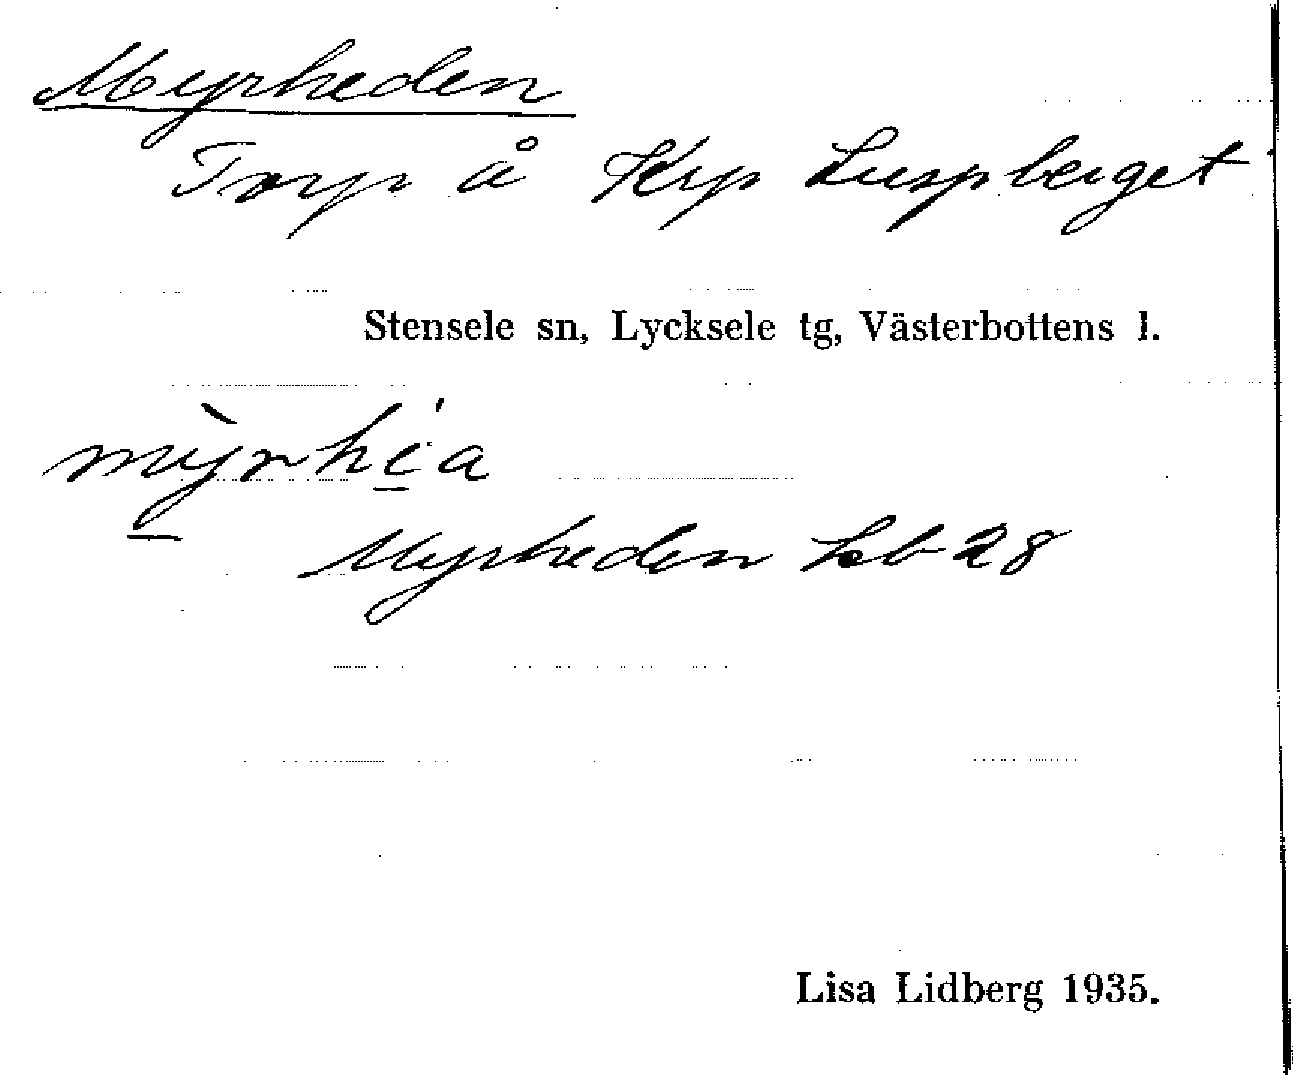 Myrheden
Torp å Krp Luspberget
Stensele sn, Lycksele tg, Västerbottens l.
Myrheden Lb 28
Lisa Lidberg 1935.